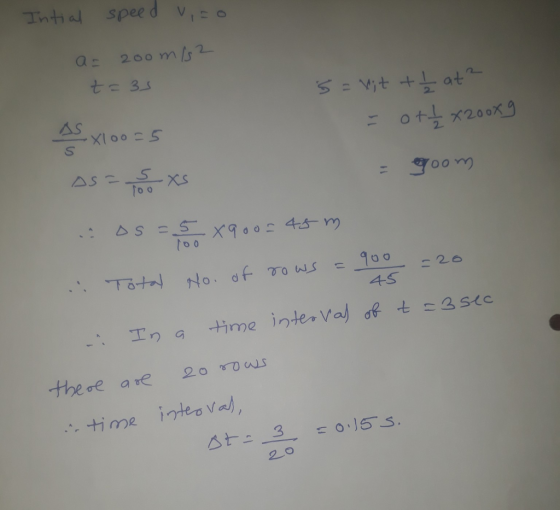 Intial speed V₁ = 0
a = 200 m/s²
t = 3s
S = V₁t + 1/2 at²
= 0 + 1/2 × 200 × 9
= 900 m
ΔS/S × 100 = 5
ΔS = 5/100 × S
∴ ΔS = 5/100 × 900 = 45 m
∴ Total No. of rows = 900/45 = 20
∴ In a time interval of t = 3 sec
there are 20 rows
∴ time interval,
Δt = 3/20 = 0.15 s.